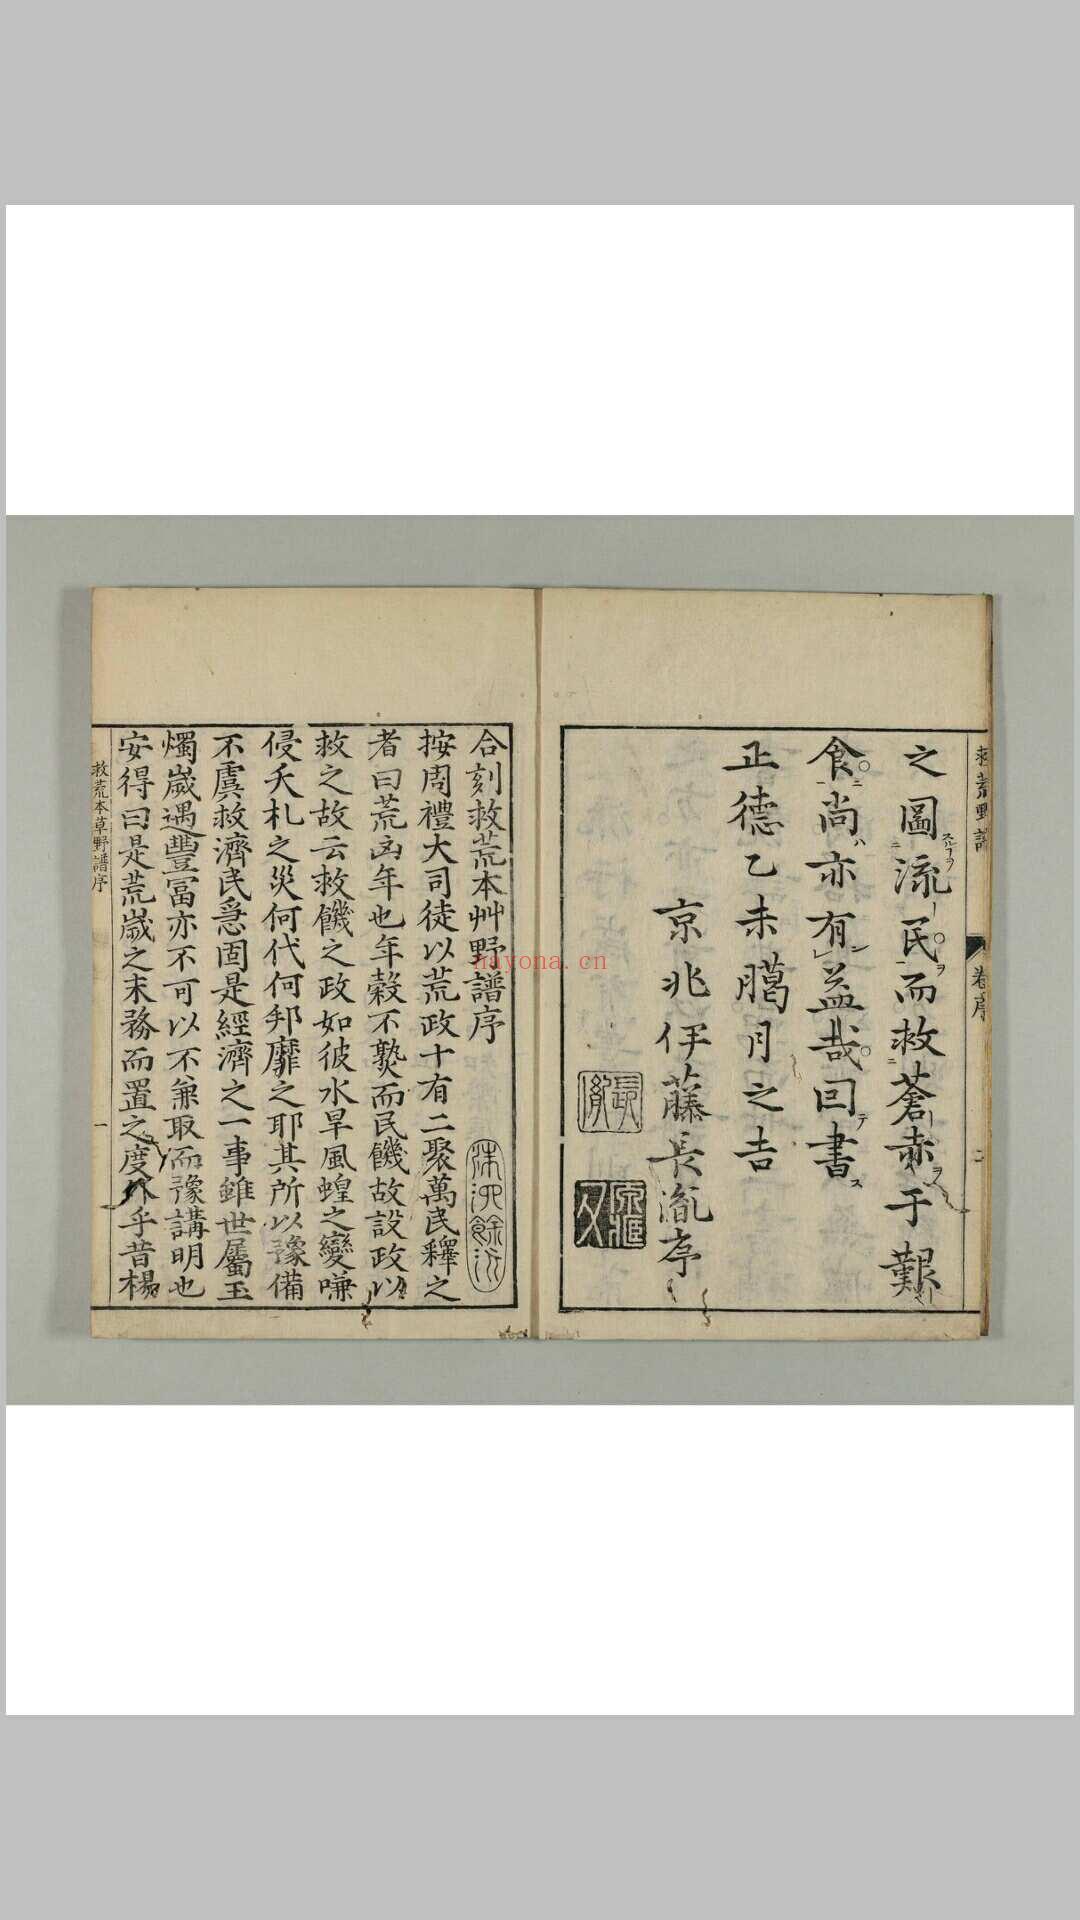 救荒野譜
卷序
二
之圖流民而救蒼赤于艱
食尚亦有益哉回書
正德乙未臈月之吉
京兆伊藤長胤序
長胤
合刻救荒本艸野譜序
按周禮大司徒以荒政十有二聚萬民釋之
者曰荒凶年也年穀不熟而民饑故設政以
救之故云救饑之政如彼水旱風蝗之變嗛
侵夭札之災何代何邦靡之耶其所以豫備
不虞救濟民急固是經濟之一事雖世屬玉
燭歲遇豐富亦不可以不兼取而豫講明也
安得曰是荒歲之末務而置之度外乎昔楊
救荒本草野譜序
一
nayona.cn